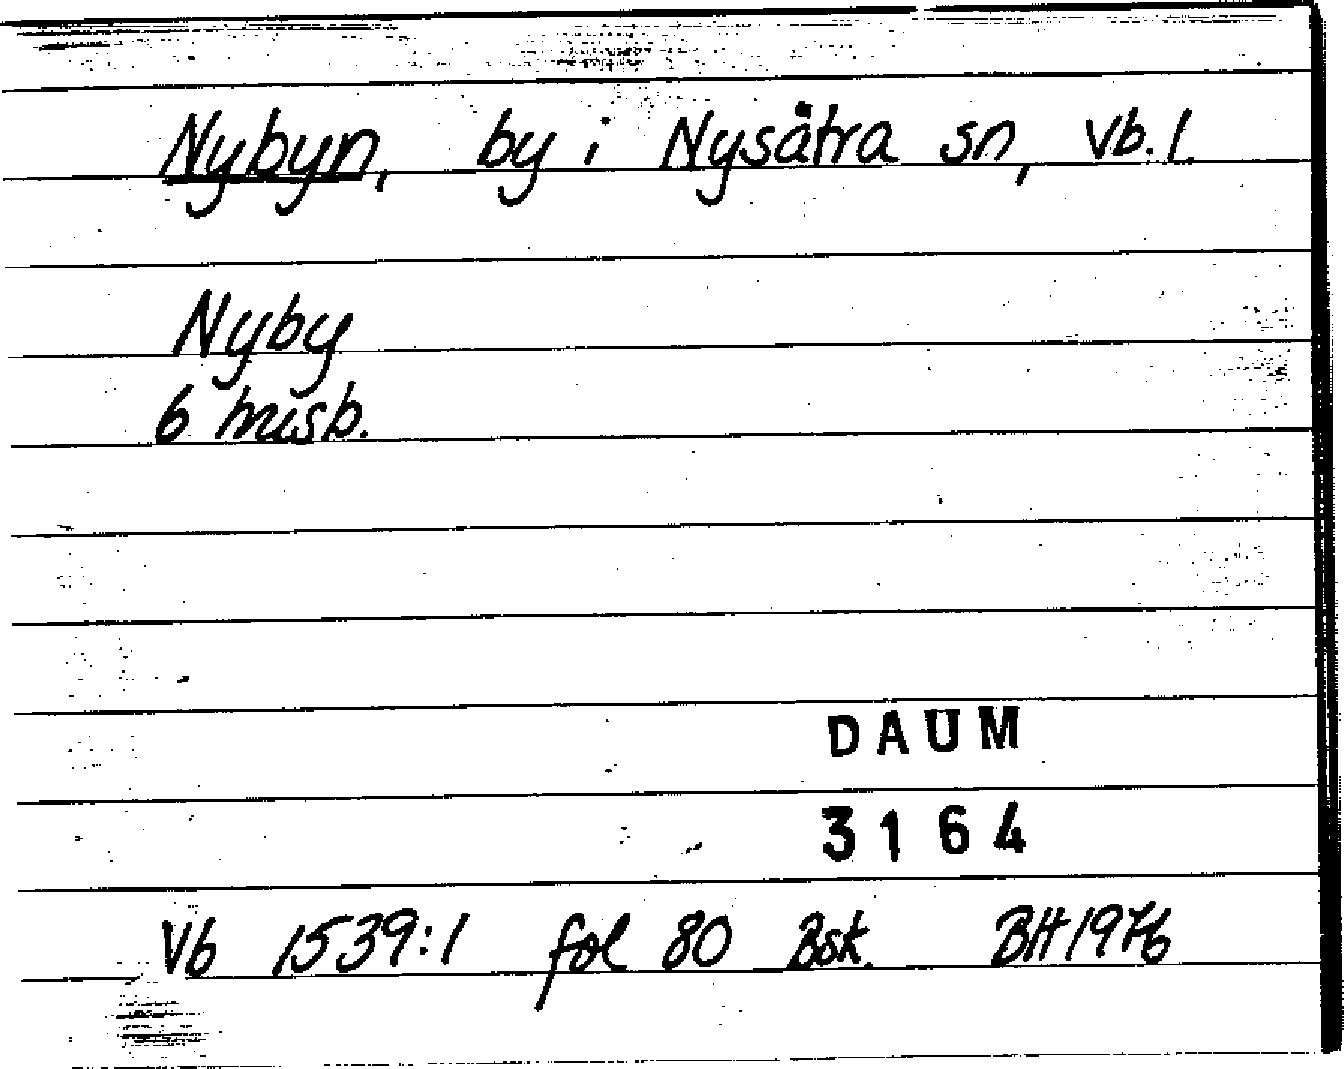 Nybyn, by i Nysätra sn, Vb. l.
Nyby
6 husb.
DAUM
3164
Vb 1539:1 fol 80 Bsk. BH 1976